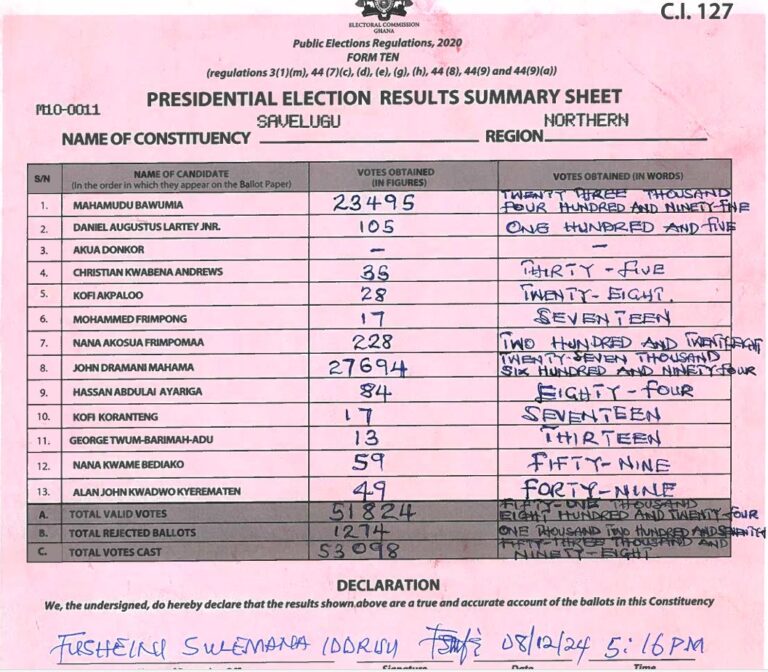 C.I. 127
ELECTORAL COMMISSION
GHANA
Public Elections Regulations, 2020
FORM TEN
(regulations 3(1)(m), 44 (7)(c), (d), (e), (g), (h), 44 (8), 44(9) and 44(9)(a))
M10-0011
PRESIDENTIAL ELECTION RESULTS SUMMARY SHEET
NAME OF CONSTITUENCY SAVELUGU REGION NORTHERN
S/N NAME OF CANDIDATE (In the order in which they appear on the Ballot Paper) VOTES OBTAINED (IN FIGURES) VOTES OBTAINED (IN WORDS)
1. MAHAMUDU BAWUMIA 23495 TWENTY THREE THOUSAND FOUR HUNDRED AND NINETY-FIVE
2. DANIEL AUGUSTUS LARTEY JNR. 105 ONE HUNDRED AND FIVE
3. AKUA DONKOR – –
4. CHRISTIAN KWABENA ANDREWS 35 THIRTY-FIVE
5. KOFI AKPALOO 28 TWENTY-EIGHT.
6. MOHAMMED FRIMPONG 17 SEVENTEEN
7. NANA AKOSUA FRIMPOMAA 228 TWO HUNDRED AND TWENTY EIGHT
8. JOHN DRAMANI MAHAMA 27694 TWENTY-SEVEN THOUSAND SIX HUNDRED AND NINETY-FOUR
9. HASSAN ABDULAI AYARIGA 84 EIGHTY-FOUR
10. KOFI KORANTENG 17 SEVENTEEN
11. GEORGE TWUM-BARIMAH-ADU 13 THIRTEEN
12. NANA KWAME BEDIAKO 59 FIFTY-NINE
13. ALAN JOHN KWADWO KYEREMATEN 49 FORTY-NINE
A. TOTAL VALID VOTES 51824 FIFTY-ONE THOUSAND EIGHT HUNDRED AND TWENTY-FOUR
B. TOTAL REJECTED BALLOTS 1274 ONE THOUSAND TWO HUNDRED AND SEVENTY
C. TOTAL VOTES CAST 53098 FIFTY-THREE THOUSAND AND NINETY-EIGHT
DECLARATION
We, the undersigned, do hereby declare that the results shown above are a true and accurate account of the ballots in this Constituency
FUSHEINI SULEMANA IDDRISU 08/12/24 5:16PM
Signature Date Time